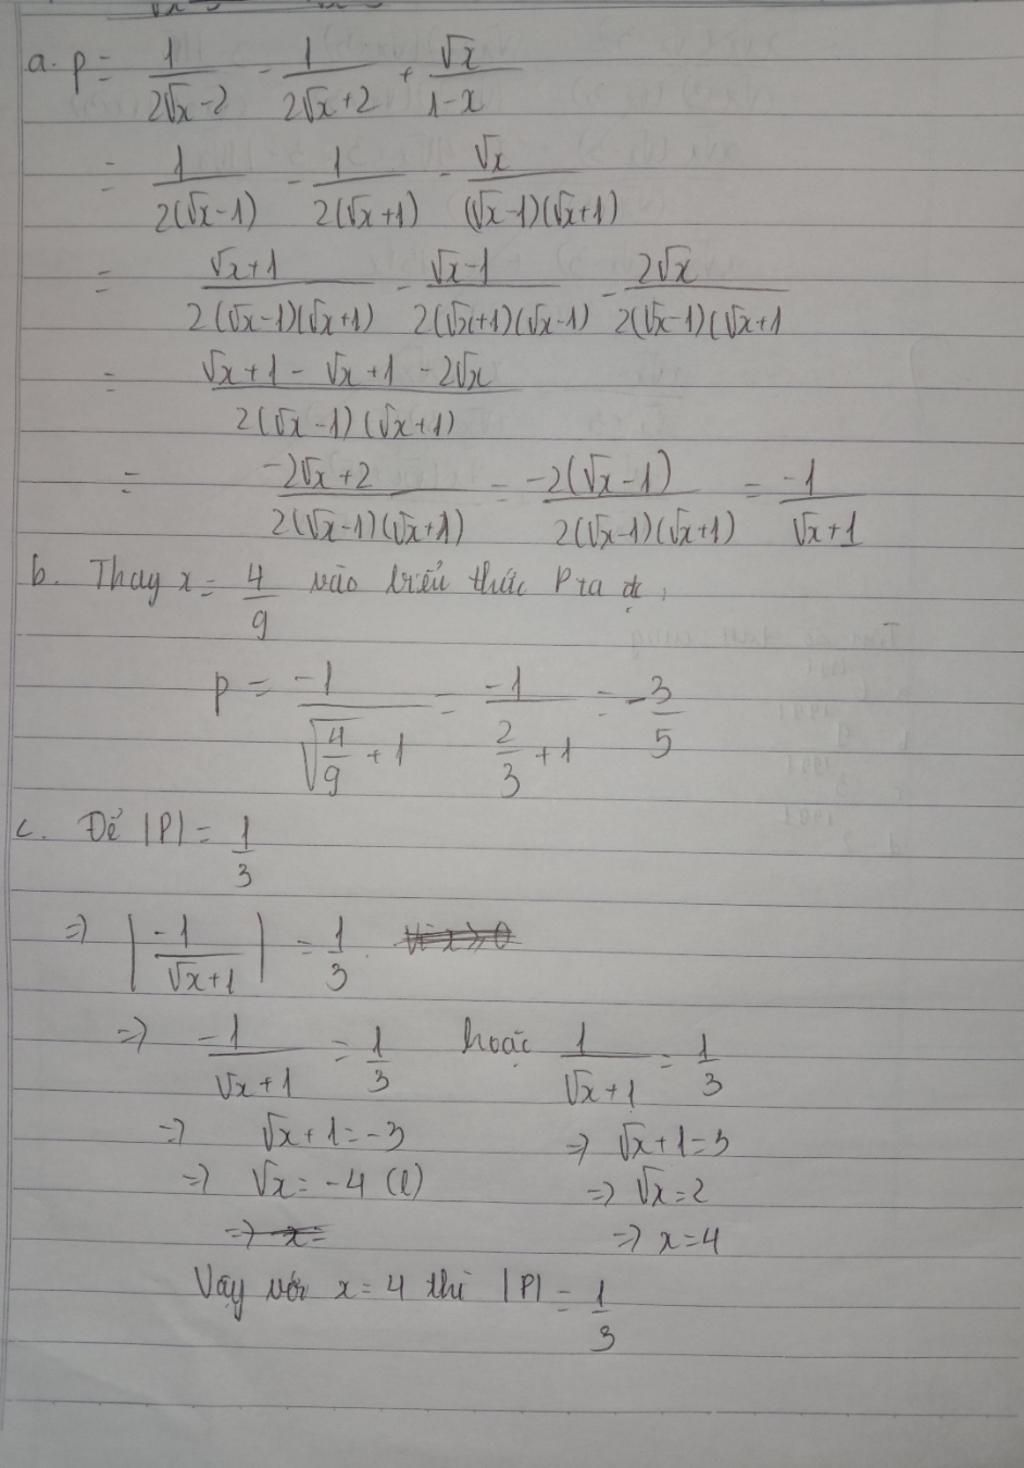 a. P = 1/(2√x-2) - 1/(2√x+2) + √x/(1-x)
= 1/(2(√x-1)) - 1/(2(√x+1)) - √x/((√x-1)(√x+1))
= (√x+1)/(2(√x-1)(√x+1)) - (√x-1)/(2(√x+1)(√x-1)) - 2√x/(2(√x-1)(√x+1
= (√x+1-√x+1-2√x)/(2(√x-1)(√x+1))
= (-2√x+2)/(2(√x-1)(√x+1)) = -2(√x-1)/(2(√x-1)(√x+1)) = -1/(√x+1)
b. Thay x = 4/9 vào biểu thức P ta đc
P = -1/(√(4/9)+1) = -1/(2/3+1) = -3/5
c. Để |P| = 1/3
=> |-1/(√x+1)| = 1/3. Vì x≥0
=> -1/(√x+1) = 1/3 hoặc 1/(√x+1) = 1/3
=> √x+1=-3 => √x+1=3
=> √x=-4 (l) => √x=2
=> x= => x=4
Vậy với x=4 thì |P| = 1/3